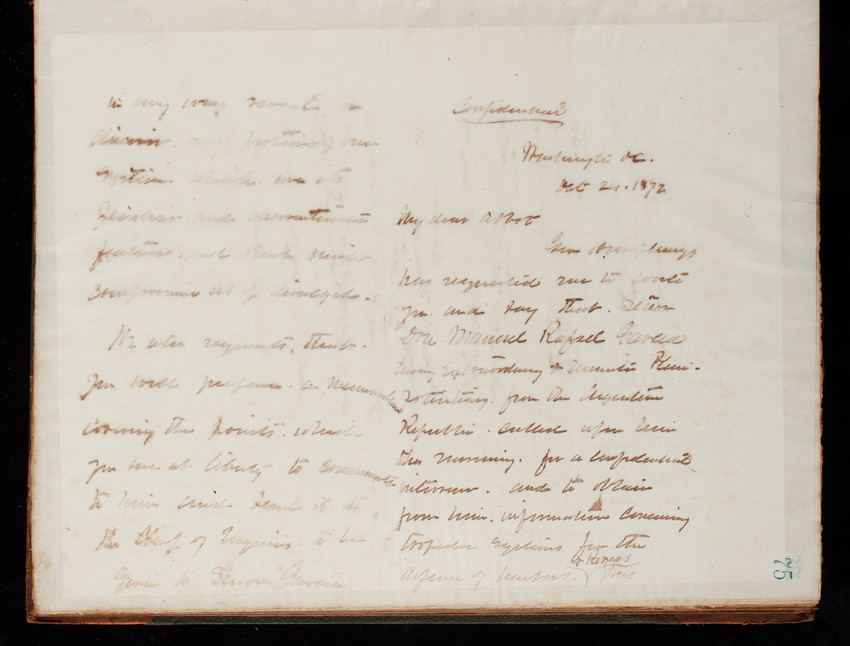 Confidential
Washington DC.
Oct 24. 1872
My dear Abbot
Genl Humphreys
has requested me to write
you and say that Señor
Don Manuel Rafael Garcia
Envoy Extraordinary & Minister Pleni-
potentiary from the Argentine
Republic called upon him
this morning for a confidential
interview. and to obtain
from him information concerning
torpedo systems for the
defense of harbors & Rivers This
in any way reveal or
any portions of our
system which are its
and
features and that might
compromise it if divulged.
He also requests, that
you will prepare a memorandum
covering the points which
you are at liberty to communicate
to him and send it to
the Chief of Engineers to be
given to Senor Garcia
75